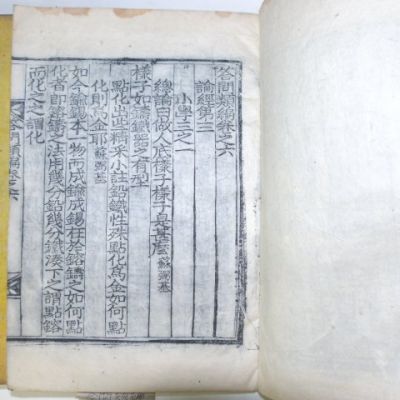 答問類編卷之六
論經第三
小學三之一
總論曰做人底樣子樣子是甚底 蘇弼基
樣子如鑄鐵之有型
點化出精采小註鉛鐵性殊點化爲金如何點
化則爲金耶 蘇弼基
如今鍮錫本一物而成鍮成錫在於鎔鑄之如何點
化者卽鎔鑄之法用幾分鉛幾分鐵湊下之謂點鎔
而化之之謂化
答問類編卷之六